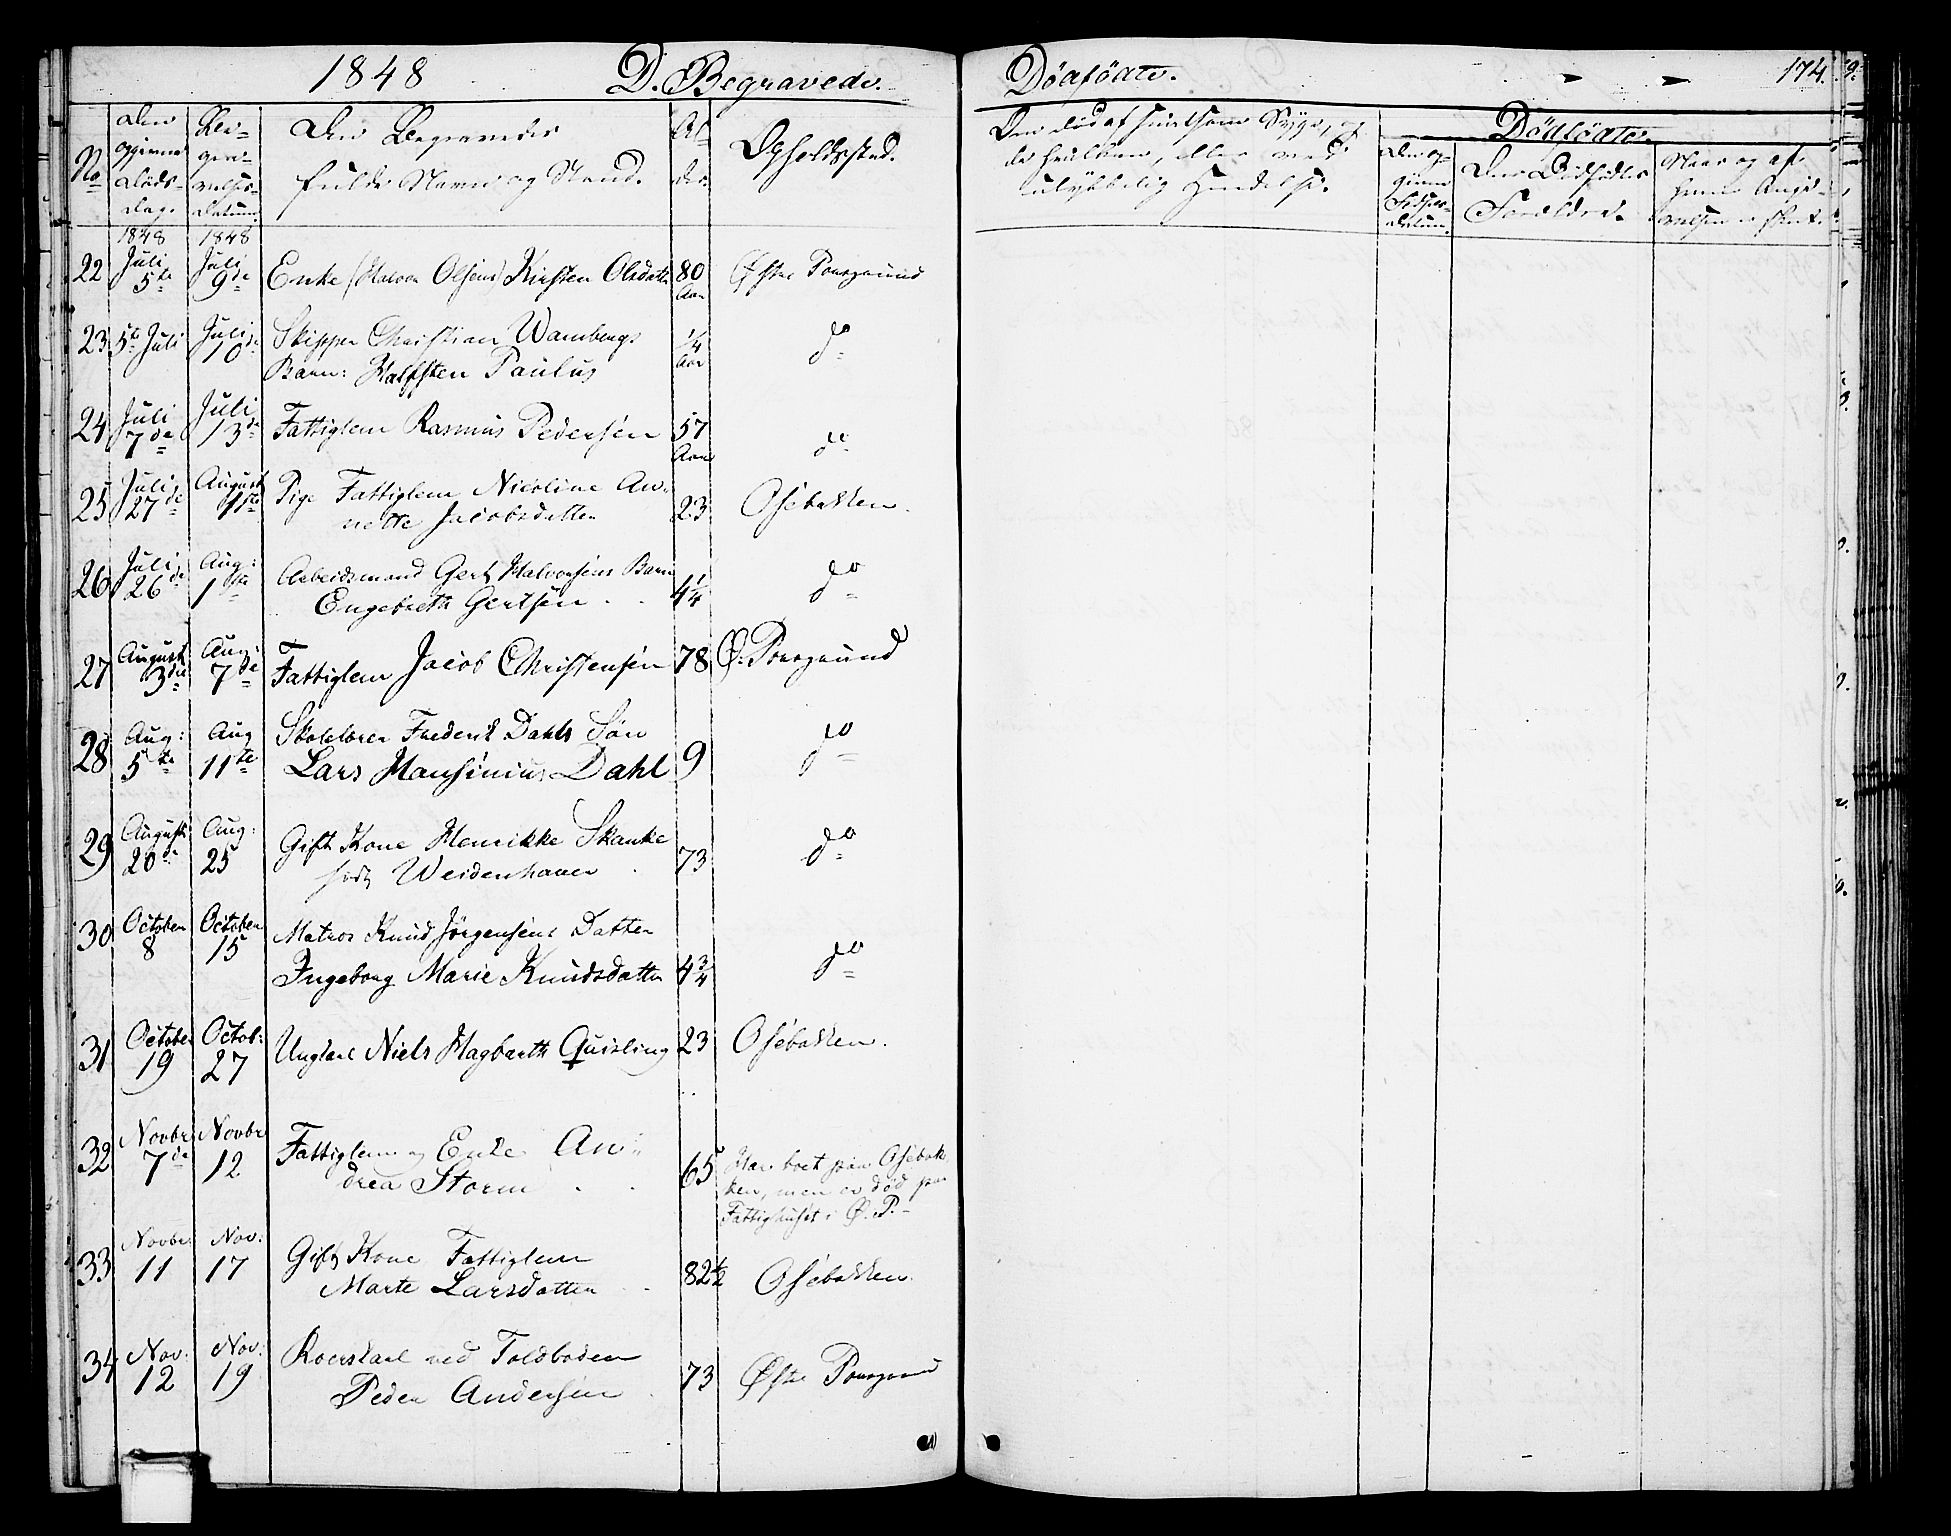 1848 D. Begravede.
No
Den opgivne Døds-Dag.
Be-gra-velses-Datum
Den Begravedes
fulde Navn og Stand.
Al-der.
Opholdssted.
1848 1848
22 Juli 5te Juli 9de Enke (Halvor Olsens) Kirsten Olsdatter 80 Aar Østre Porsgrund
23 5te Juli Juli 10de Skipper Christian Wambergs
Barn: Halfsten Paulus 1/4 Aar do
24 Juli 7de Juli 13de Fattiglem Rasmus Pedersen 57 Aar do
25 Juli 27de August 1ste Pige Fattiglem Nicoline An-
nette Jacobsdatter 23 Osebakken.
26 Juli 26de Aug: 1ste Arbeidsmand Gert Halvorsens Barn
Engebreth Gertsen 4 1/4 do
27 August 3die Aug: 7de Fattiglem Jacob Christensen 78 Ø. Porsgrund
28 Aug: 5te Aug 11te Skolelærer Frederik Dahls Søn
Lars Hansinius Dahl 9 do
29 August 20de Aug: 25 Gift Kone Henrikke Skanke
født Weidenhauer 73 do
30 October 8 October 15 Matros Knud Jörgensens Datter
Ingeborg Marie Knudsdatter 4 3/4 do
31 October 19 Octob: 27 Ungkarl Niels Hagbarth Quisling 23 Osebakken.
32 Novbr 7de Novbr 12 Fattiglem og Enke An-
drea Storm 65 Har boet paa Osebak-
ken, men er død paa
Fattighuset i Ø. P.
33 Novbr 11 Nov: 17 Gift Kone Fattiglem
Marte Larsdatter 82 1/2 Osebakken.
34 Nov: 12 Nov: 19 Roerskarl ved Toldboden
Peder Andersen 73 Østre Porsgrund
Dödfödte. 174.
Den død af smitsom Syge, og
da hvilken, eller ved
ulykkelig Hændelse.
Dödfödte.
Den op-givne Fødsels-Datum.
Den Dødfødtes
Forældre.
Naar og af
hvem Angi-
velsen er skeet.